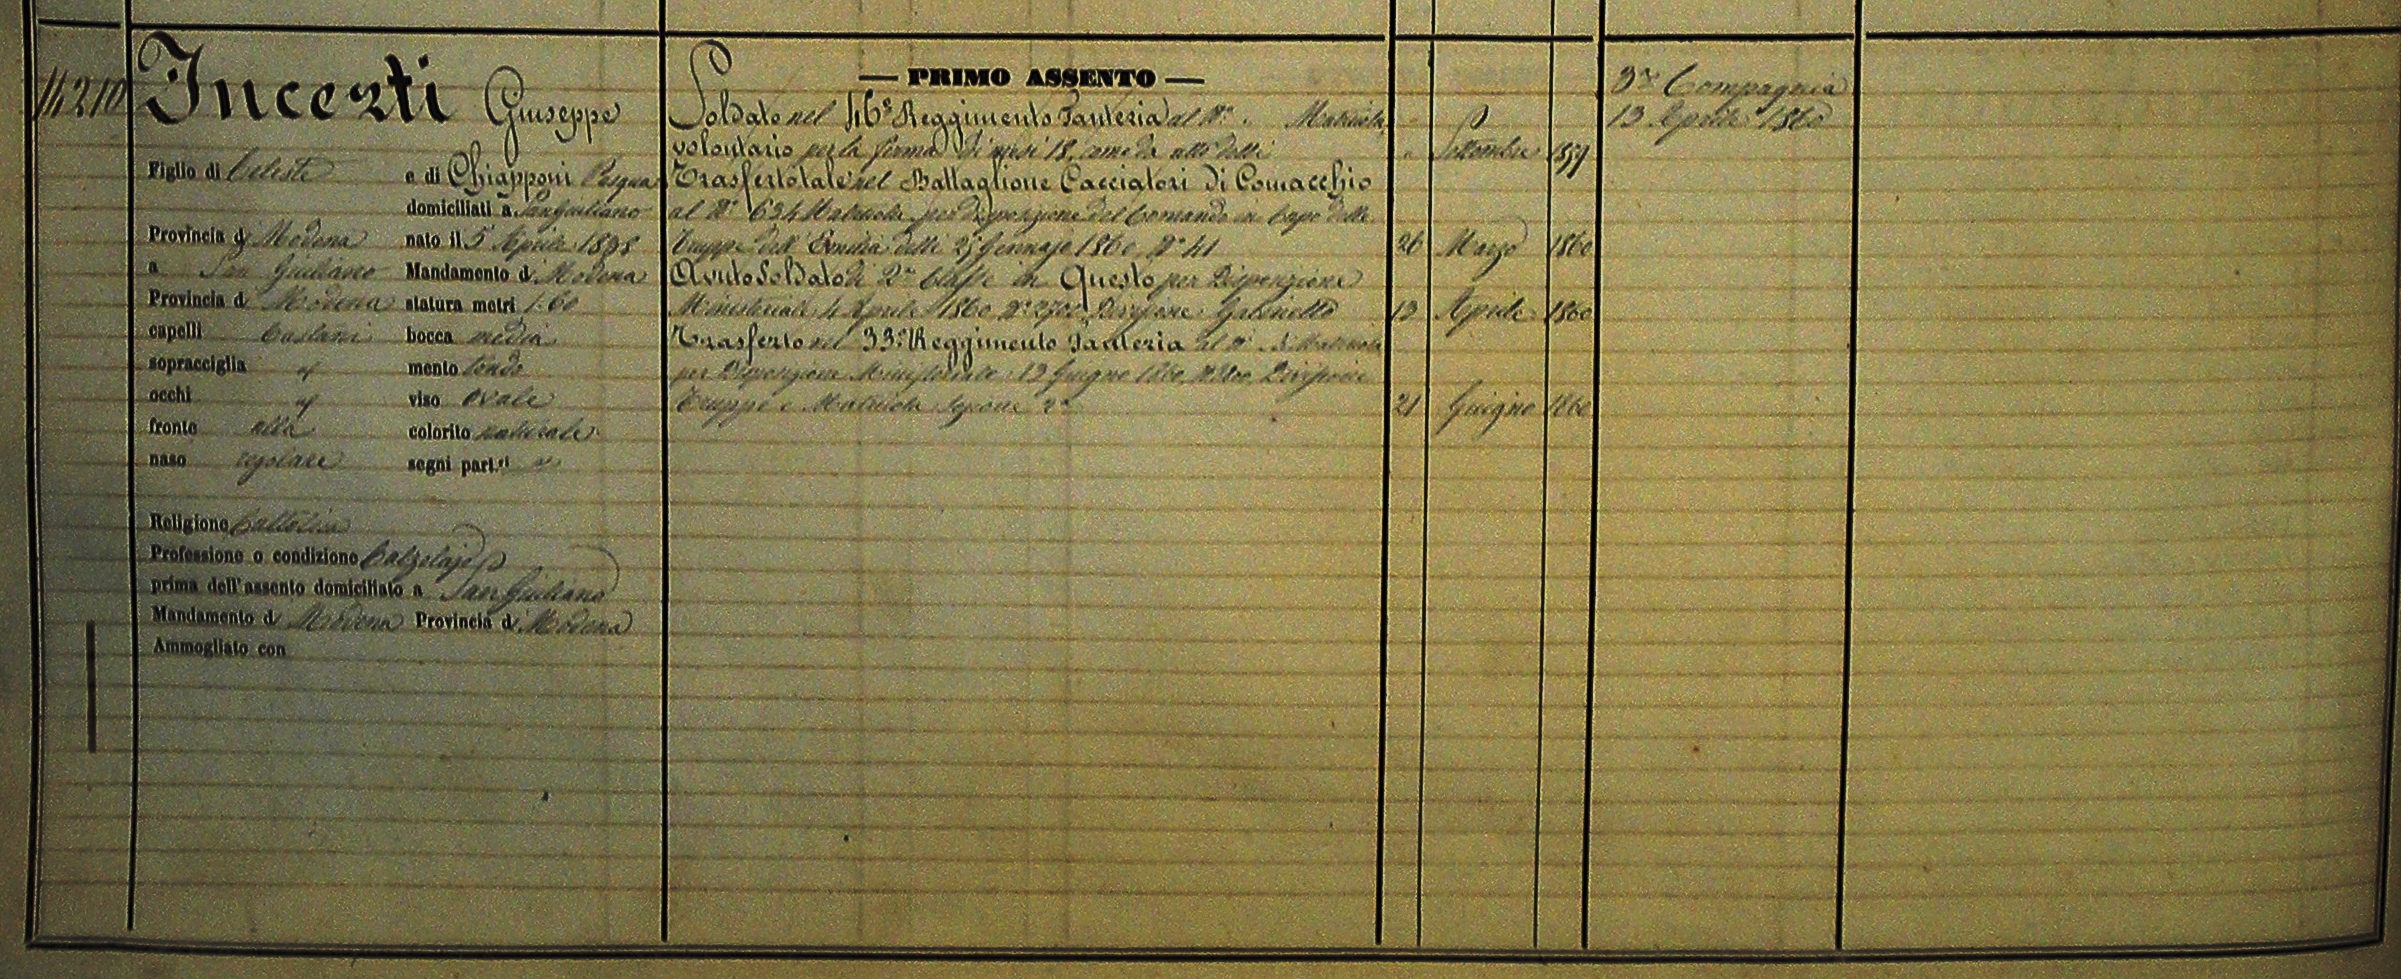 14210
Incerti Giuseppe
Figlio di Celeste e di Chiapponi Pasqua
domiciliati a San Giuliano
Provincia di Modena nato il 5 Aprile 1838
a San Giuliano Mandamento di Modena
Provincia di Modena statura metri 1.60
capelli Castani bocca media
sopracciglia id mento tondo
occhi id viso Ovale
fronte alta colorito naturale
naso regolare segni part.ri
Religione Cattolica
Professione o condizione Calzolajo
prima dell'assento domiciliato a San Giuliano
Mandamento di Modena Provincia di Modena
Ammogliato con
— PRIMO ASSENTO —
Soldato nel 46° Reggimento Fanteria al N° Matricola
volontario per la ferma di mesi 18, come da atto delli Settembre 1859
Trasferto tale nel Battaglione Cacciatori di Comacchio
al N° 634 Matricola per disposizione del Comando in Capo delle
Truppe dell'Emilia delli 25 Gennajo 1860 N° 41 26 Marzo 1860
Avuto Soldato di 2a Classe in Questo per Disposizione
Ministeriale 4 Aprile 1860 Divisione Gabinetto 13 Aprile 1860
Trasferto nel 33° Reggimento Fanteria al N° di Matricola
per Disposizione Ministeriale 12 Giugno 1860, Divisione
Truppe e Matricola Sezione 2a 21 Giugno 1860
3a Compagnia
13 Aprile 1860